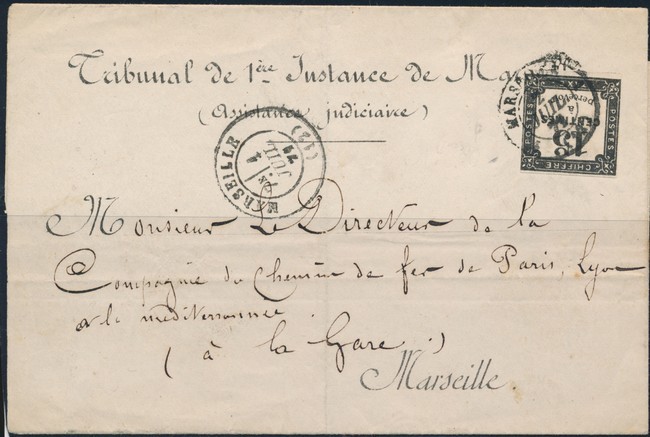 Tribunal de 1ère Instance de Mar
(Assistance judiciaire)
MARSEILLE
(12)
JUIL
MARSEILLE
CHIFFRE
POSTES
POSTES
15
CENTIMES
à
percevoir
Monsieur Le Directeur de la
Compagnie du Chemin de fer de Paris, Lyon
& la mediterrannée.
(à la Gare.)
Marseille.